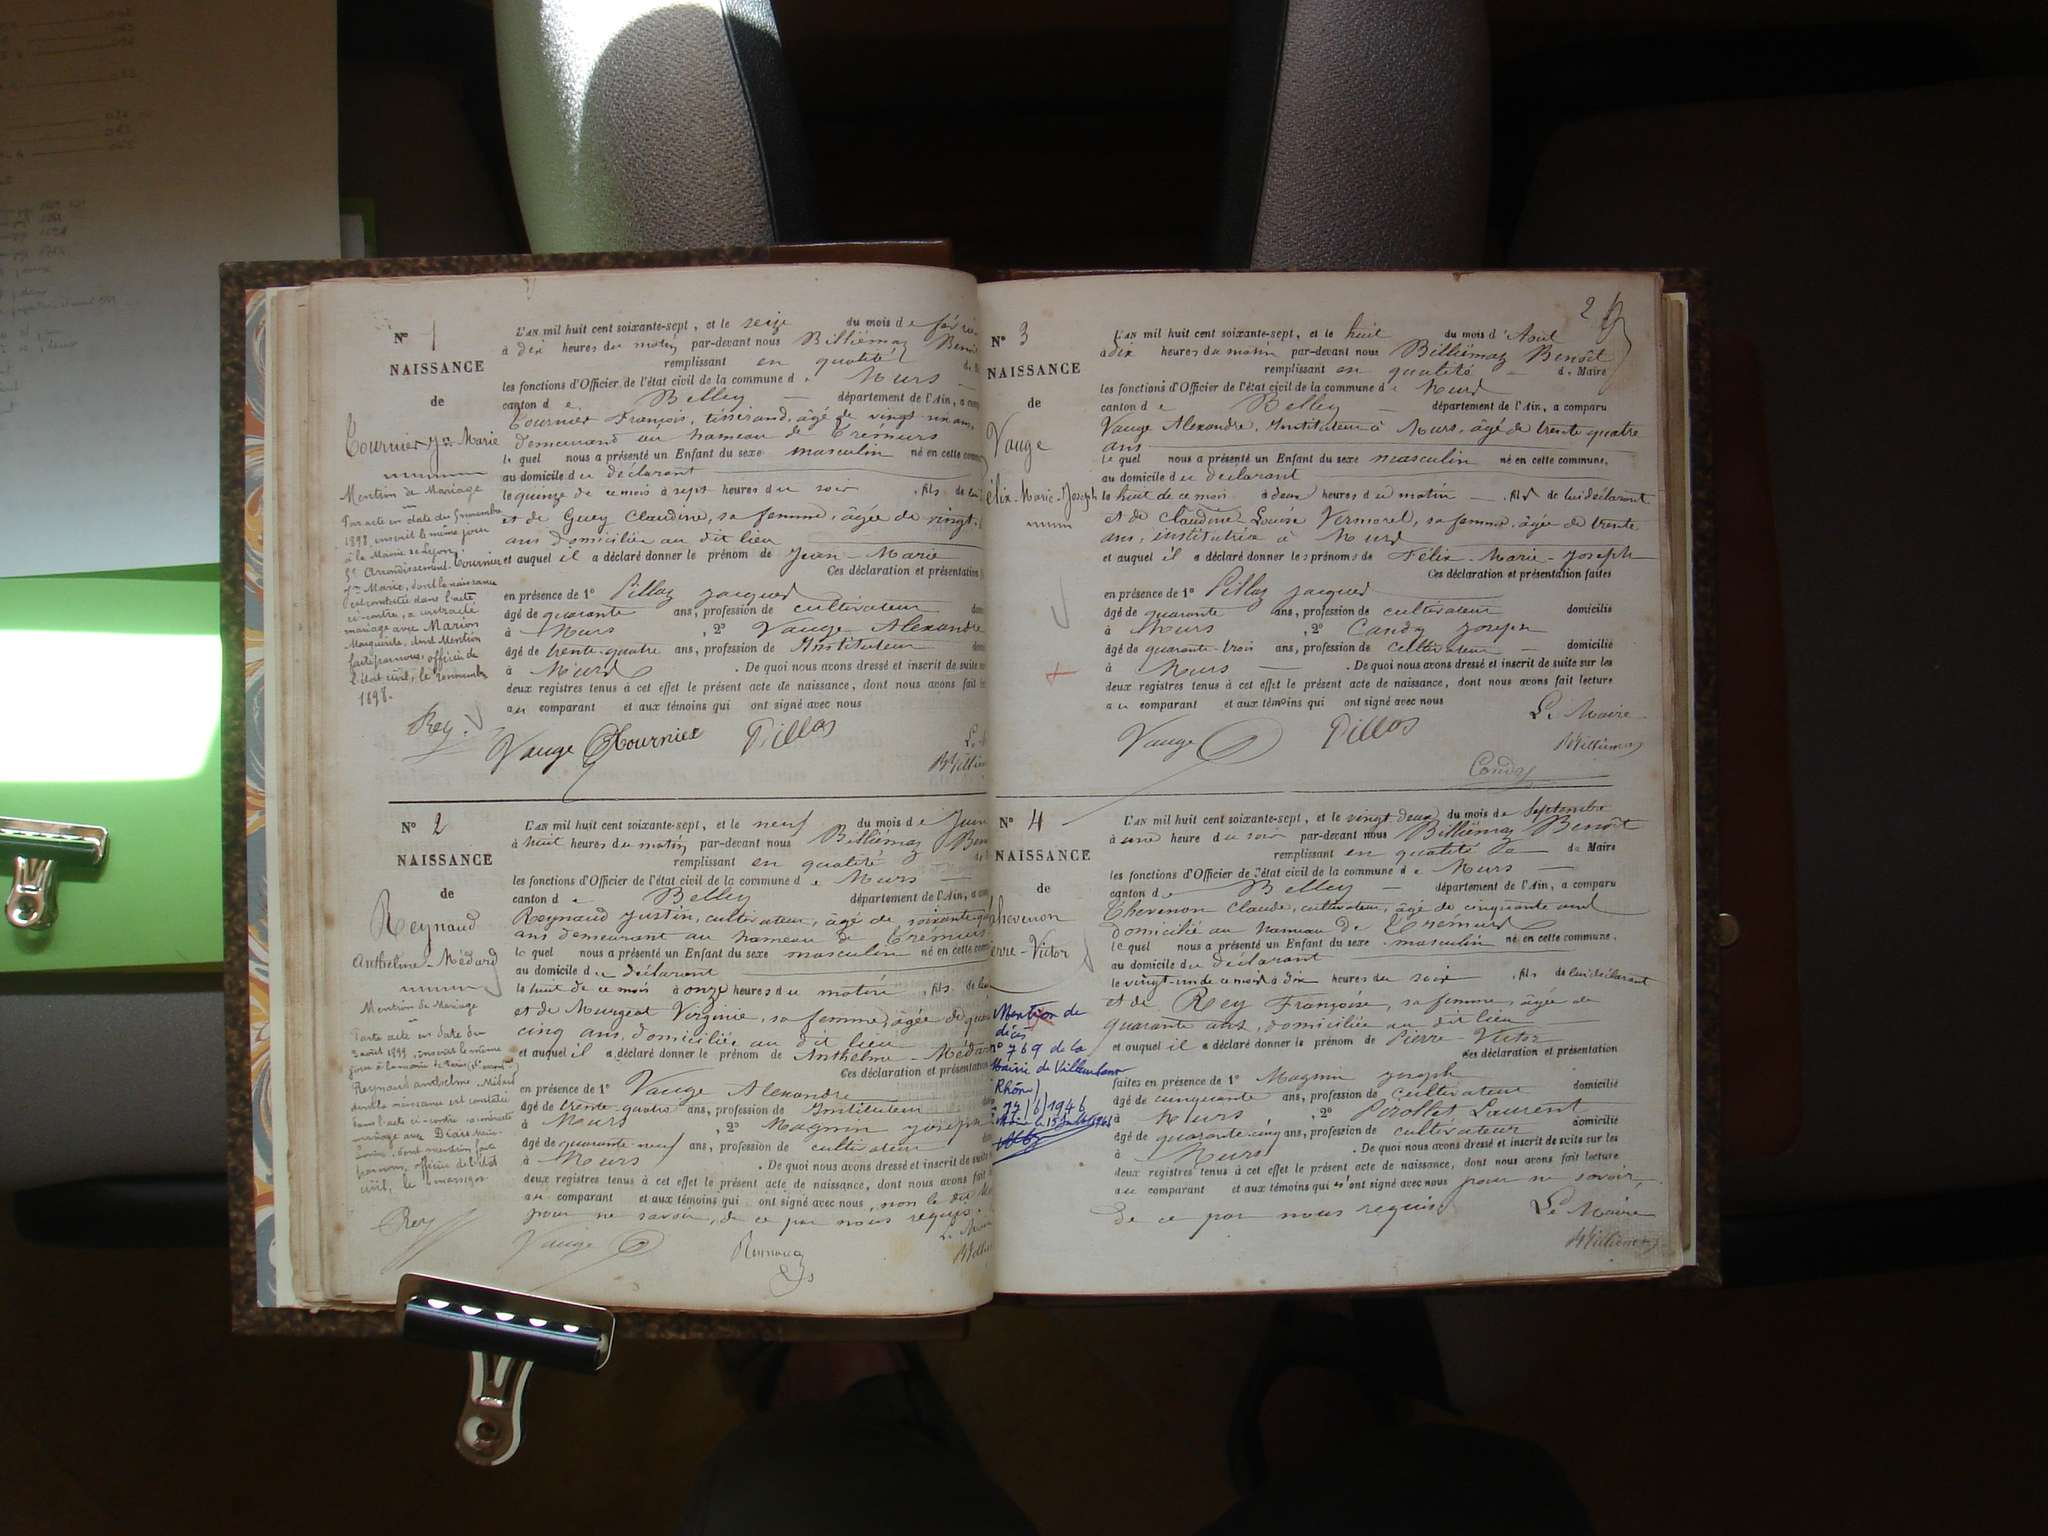 N° 1
NAISSANCE
de
Tournier Jn Marie
Mention de Mariage
Par acte en date du 9 novembre
1898, inscrit le même jour
à la Mairie de Lyon,
5e Arrondissement. Tournier
Jn Marie, dont la naissance
est constatée dans l'acte
ci-contre, a contracté
mariage avec Marion
Marguerite, dont Mention
faite par nous, officier de
l'état civil, le novembre
1898.
Rey.
L'AN mil huit cent soixante-sept, et le seize du mois de fév
à dix heures du matin par-devant nous Billiémaz Benoî
remplissant en qualité de
les fonctions d'Officier de l'état civil de la commune de Murs
canton de Belley département de l'Ain, a com
Tournier François, tisserand, âgé de vingt-un ans,
demeurant au hameau de Trémurs
lequel nous a présenté un Enfant du sexe masculin né en cette comm
au domicile du déclarant
le quinze de ce mois à sept heures du soir, fils de lui
et de Guey Claudine, sa femme, âgée de vingt-
ans domiciliée au dit lieu
et auquel il a déclaré donner le prénom de Jean-Marie
Ces déclaration et présentation f
en présence de 1° Pillaz Jacques
âgé de quarante ans, profession de cultivateur dom
à Murs, 2° Vauge Alexandre
âgé de trente-quatre ans, profession de Instituteur dom
à Murs. De quoi nous avons dressé et inscrit de suite sur
deux registres tenus à cet effet le présent acte de naissance, dont nous avons fait lec
au comparant et aux témoins qui ont signé avec nous
Vauge Tournier Pillos
N° 2
NAISSANCE
de
Reynaud
Anthelme-Médard
Mention de Mariage
acte en date du
août 1899, inscrit le même
jour à la mairie de
Reynaud Anthelme Médard
dont la naissance est constatée
dans l'acte ci-contre a contracté
mariage avec
dont mention faite
par nous, officier de l'état
civil, le
Rey
L'AN mil huit cent soixante-sept, et le neuf du mois de Juin
à huit heures du matin par-devant nous Billiémaz Ben
remplissant en qualité de
les fonctions d'Officier de l'état civil de la commune de Murs
canton de Belley département de l'Ain, a com
Reynaud Justin, cultivateur, âgé de soixante
ans demeurant au hameau de Trémurs
lequel nous a présenté un Enfant du sexe masculin né en cette com
au domicile du déclarant
le huit de ce mois à onze heures du matin, fils de lui
et de Murgeat Virginie, sa femme, âgée de quar
cinq ans, domiciliée au dit lieu
et auquel il a déclaré donner le prénom de Anthelme-Médard
Ces déclaration et présentation
en présence de 1° Vauge Alexandre
âgé de trente-quatre ans, profession de Instituteur
à Murs, 2° Magnin Joseph
âgé de quarante-neuf ans, profession de cultivateur
à Murs. De quoi nous avons dressé et inscrit de suite
deux registres tenus à cet effet le présent acte de naissance, dont nous avons fait
au comparant et aux témoins qui ont signé avec nous, non le dit
pour ne savoir, de ce par nous requis.
Vauge Reynaud
2
N° 3
NAISSANCE
de
Vauge
élix-Marie-Joseph
L'AN mil huit cent soixante-sept, et le huit du mois d'Août
à dix heures du matin par-devant nous Billiémaz Benoît
remplissant en qualité de Maire
les fonctions d'Officier de l'état civil de la commune de Murs
canton de Belley département de l'Ain, a comparu
Vauge Alexandre, Instituteur à Murs, âgé de trente quatre
ans
lequel nous a présenté un Enfant du sexe masculin né en cette commune,
au domicile du déclarant
le huit de ce mois à deux heures du matin, fils de lui déclarant
et de Claudine Louise Vermorel, sa femme, âgée de trente
ans, institutrice à Murs
et auquel il a déclaré donner les prénoms de Félix-Marie-Joseph
Ces déclaration et présentation faites
en présence de 1° Pillaz Jacques
âgé de quarante ans, profession de cultivateur domicilié
à Murs, 2° Candy Joseph
âgé de quarante-trois ans, profession de cultivateur domicilié
à Murs. De quoi nous avons dressé et inscrit de suite sur les
deux registres tenus à cet effet le présent acte de naissance, dont nous avons fait lecture
au comparant et aux témoins qui ont signé avec nous
Le Maire
Vauge Pillos Billiémaz
Candy
N° 4
NAISSANCE
de
Thevenon
erre-Victor
Mention de
décès
n° 769 de la
Mairie de Villeurbanne
Rhône)
17/6/1946
L'AN mil huit cent soixante-sept, et le vingt deux du mois de Septembre
à une heure du soir par-devant nous Billiémaz Benoît
remplissant en qualité de Maire
les fonctions d'Officier de l'état civil de la commune de Murs
canton de Belley département de l'Ain, a comparu
Thevenon Claude, cultivateur, âgé de cinquante ans
domicilié au hameau de Trémurs
lequel nous a présenté un Enfant du sexe masculin né en cette commune,
au domicile du déclarant
le vingt-un de ce mois à dix heures du soir, fils de lui déclarant
et de Rey Françoise, sa femme, âgée de
quarante ans, domiciliée au dit lieu
et auquel il a déclaré donner le prénom de Pierre-Victor
Ces déclaration et présentation
faites en présence de 1° Magnin Joseph
âgé de cinquante ans, profession de cultivateur domicilié
à Murs, 2° Perollet Laurent
âgé de quarante-cinq ans, profession de cultivateur domicilié
à Murs. De quoi nous avons dressé et inscrit de suite sur les
deux registres tenus à cet effet le présent acte de naissance, dont nous avons fait lecture
au comparant et aux témoins qui n'ont signé avec nous pour ne savoir,
de ce par nous requis
Le Maire
Billiémaz